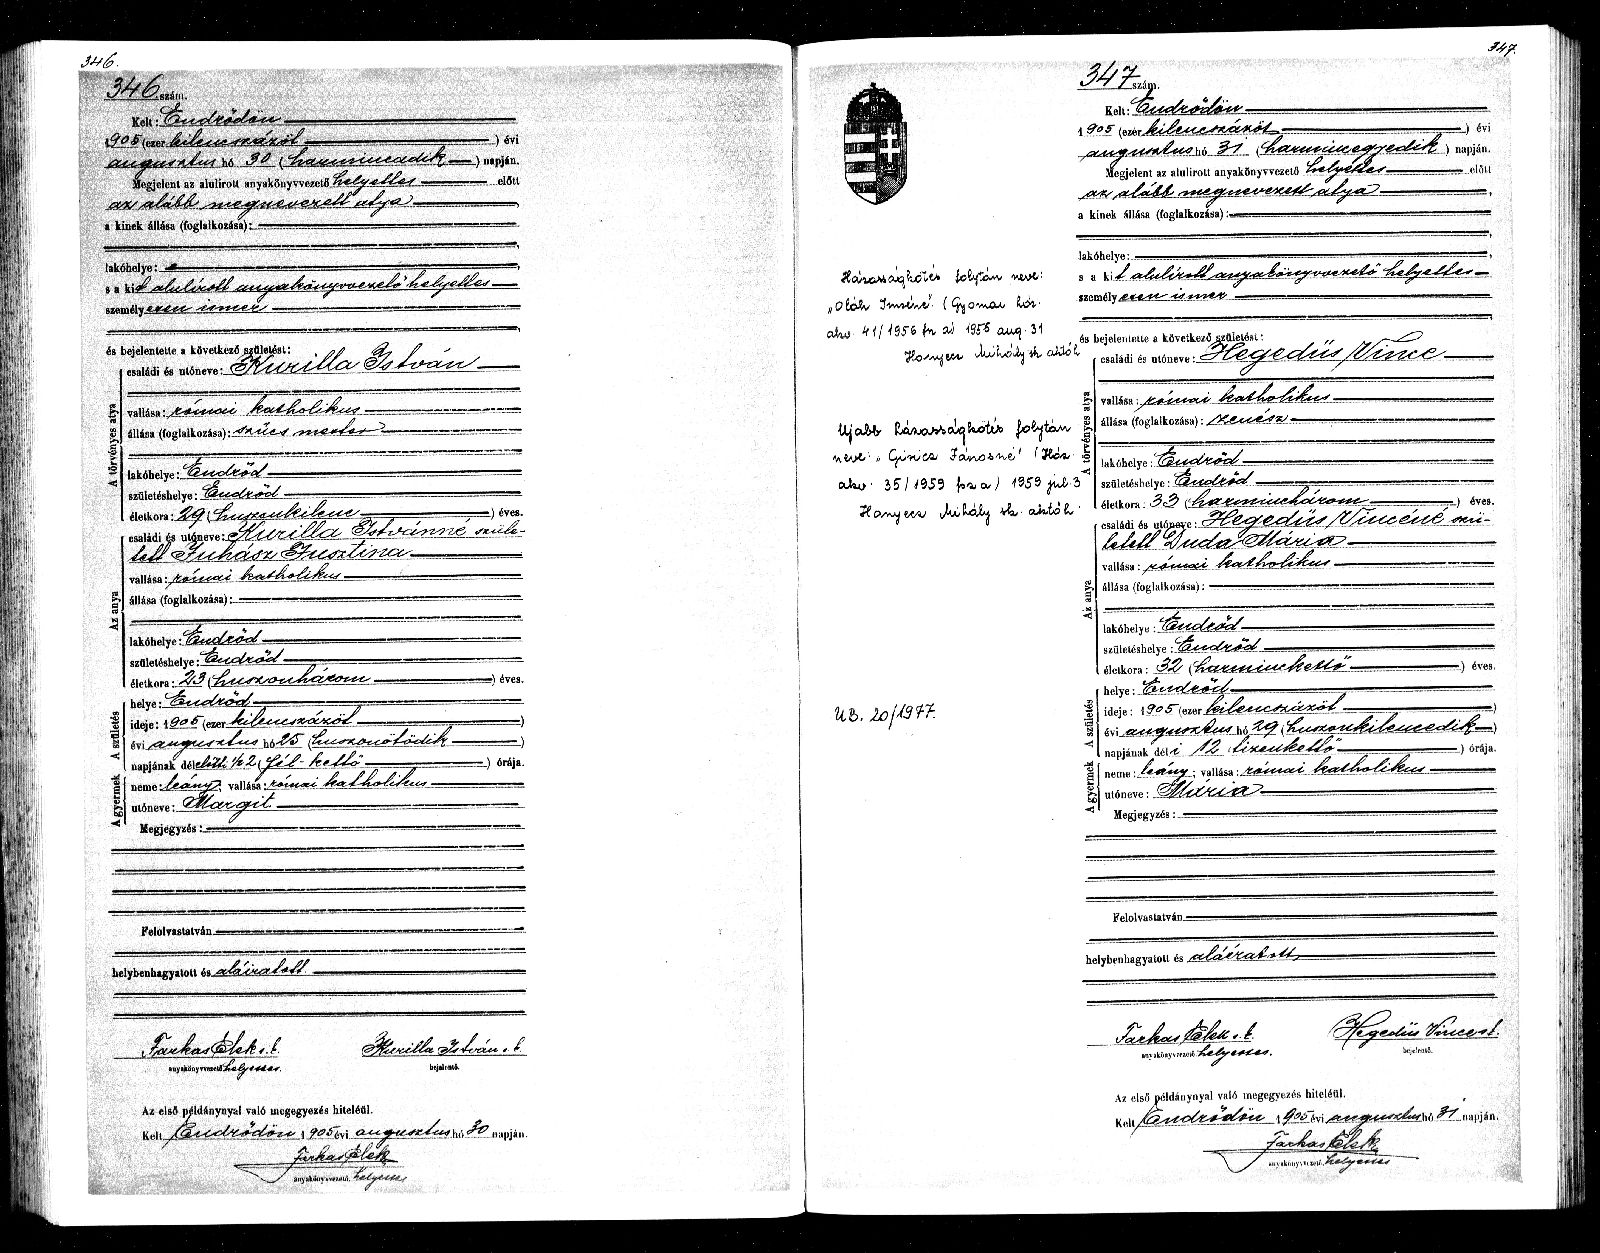 346.
346 szám.
Kelt: Endrődön
1905 (ezer kilencszázöt ) évi
augusztus hó 30 (harmincadik ) napján.
Megjelent az alulirott anyakönyvvezető helyettes előtt
az alább megnevezett atya ,
a kinek állása (foglalkozása):
,
lakóhelye: ,
s a kit alulírott anyakönyvvezető helyettes
személyesen ismer
,
és bejelentette a következő születést:
A törvényes atya
családi és utóneve: Kurilla István
vallása: római katholikus
állása (foglalkozása): szűcs mester
lakóhelye: Endrőd
születéshelye: Endrőd
életkora: 29 (huszonkilenc ) éves.
Az anya
családi és utóneve: Kurilla Istvánné szüle-
tett Juhász Jusztina
vallása: római katholikus
állása (foglalkozása):
lakóhelye: Endrőd
születéshelye: Endrőd
életkora: 23 (huszonhárom ) éves.
A születés
helye: Endrőd
ideje: 1905 (ezer kilencszázöt )
évi augusztus hó 25 (huszonötödik )
napjának délelőtti ½2 (fél-kettő ) órája.
A gyermek
neme: leány; vallása: római katholikus
utóneve: Margit
Megjegyzés:
Felolvastatván
helybenhagyatott és aláíratott.
Farkas Elek s. k. Kurilla István s. k.
anyakönyvvezető helyettes. bejelentő.
Az első példánynyal való megegyezés hiteléül.
Kelt Endrődön 1905 évi augusztus hó 30 napján.
Farkas Elek
anyakönyvvezető helyettes
347.
Házasságkötés folytán neve:
„Oláh Imréné". (Gyomai ház.
akv. 41/1956 fsz a) 1956 aug. 31
Hanyecz Mihály sk. aktóh.
Ujabb házasságkötés folytán
neve: „ Giricz Jánosné" (Ház.
akv. 35/1959 fsz a) 1959 júl 3
Hanyecz Mihály sk. aktóh.
UB. 20/1977.
347 szám.
Kelt: Endrődön
1905 (ezer kilencszázöt ) évi
augusztus hó 31 (harmincegyedik ) napján.
Megjelent az alulirott anyakönyvvezető helyettes előtt
az alább megnevezett atya ,
a kinek állása (foglalkozása):
,
lakóhelye: ,
s a kit alulírott anyakönyvvezető helyettes
személyesen ismer
,
és bejelentette a következő születést:
A törvényes atya
családi és utóneve: Hegedüs Vince
vallása: római katholikus
állása (foglalkozása): zenész
lakóhelye: Endrőd
születéshelye: Endrőd
életkora: 33 (harminchárom ) éves.
Az anya
családi és utóneve: Hegedüs Vincéné szü-
letett Duda Mária
vallása: római katholikus
állása (foglalkozása):
lakóhelye: Endrőd
születéshelye: Endrőd
életkora: 32 (harminckettő ) éves.
A születés
helye: Endrőd
ideje: 1905 (ezer kilencszázöt )
évi augusztus hó 29 (huszonkilencedik )
napjának déli 12 tizenkettő ) órája.
A gyermek
neme: leány; vallása: római katholikus
utóneve: Mária
Megjegyzés:
Felolvastatván
helybenhagyatott és aláíratott.
Farkas Elek s. k. Hegedüs Vince s. k.
anyakönyvvezető helyettes. bejelentő.
Az első példánynyal való megegyezés hiteléül.
Kelt Endrődön 1905 évi augusztus hó 31 napján.
Farkas Elek
anyakönyvvezető helyettes